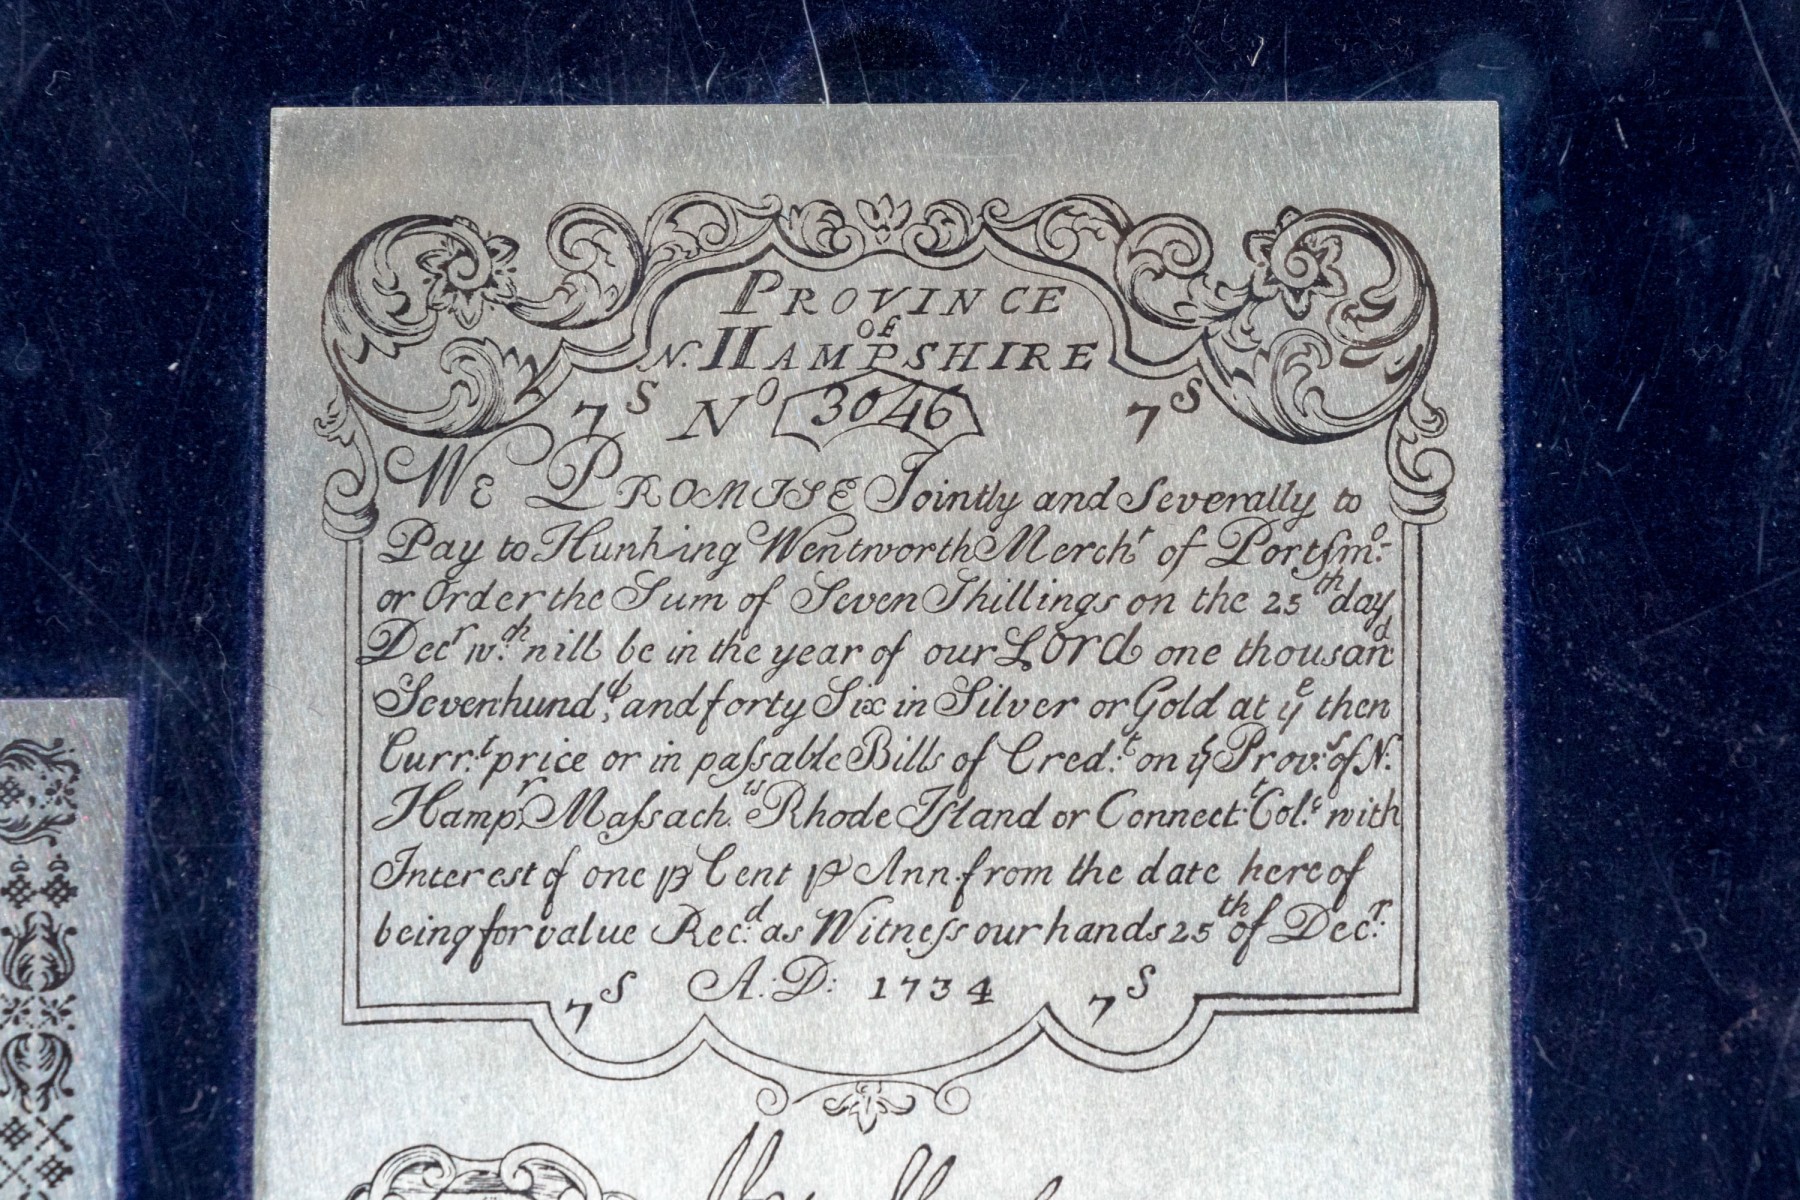 PROVINCE
OF
N. HAMPSHIRE
7S No 3046 7S
WE PROMISE Jointly and Severally to
Pay to Hunking Wentworth Mercht of Portſmo:
or Order the Sum of Seven Shillings on the 25th day
Decr wch will be in the year of our LORD one thousand
Sevenhundd, and forty Six in Silver or Gold at ye then
Curr:t price or in paſsable Bills of Cred:t on ye Prov:s of N.
Hampr, Maſsach.ts Rhode Iſland or Connect:t Col:s with
Interest of one p Cent p Ann. from the date here of
being for value Rec:d as Witneſs our hands 25th of Dec:r
7S A:D: 1734 7S